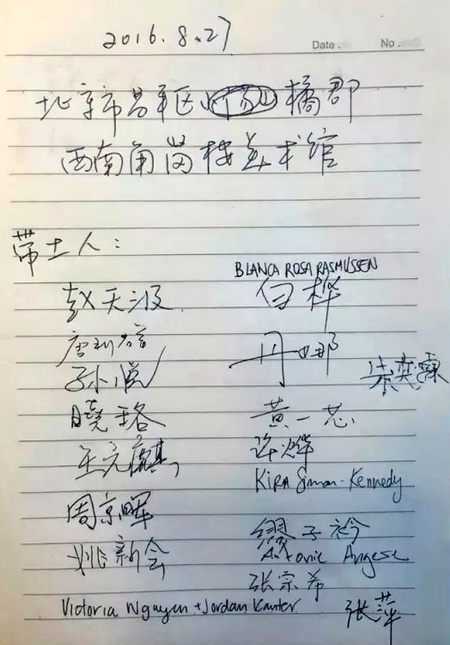 2016.8.27
Date No
北京市昌平区 橘郡
西南角岗楼美术馆
带土人：
赵天汲
唐
孙
晓珞
王亢麒
周京晖
姚新会
Victoria Nguyen + Jordan Kanter
BLANCA ROSA RASMUSSEN
白桦
丹娜
柒奕霖
黄一芯
许烨
KIRA Simon-Kennedy
缪子衿
Antonie Angerer
张宗希
张萍